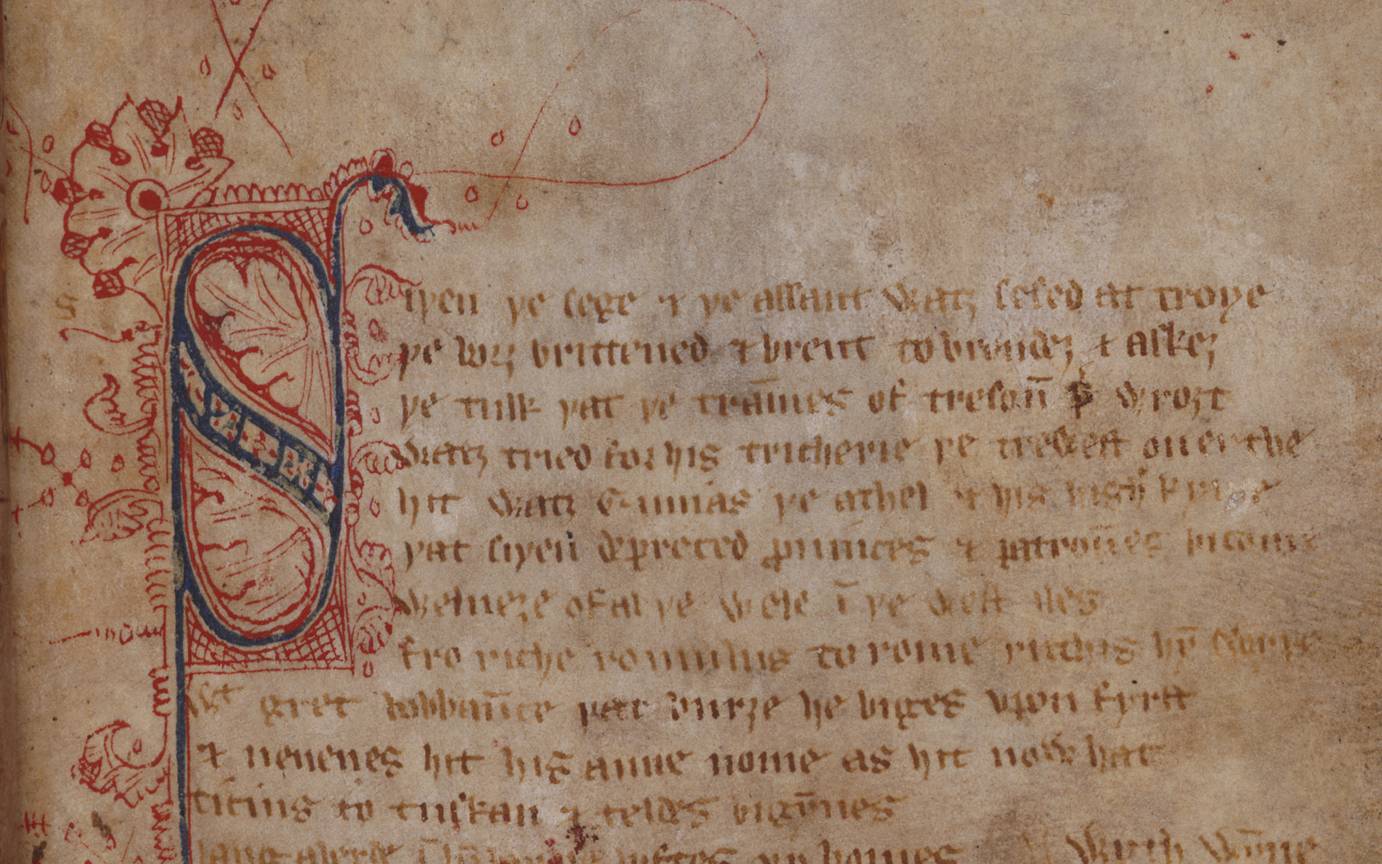 Siþen þe sege & þe assaut watz sesed at troye
þe borȝ brittened & brent to brondeȝ & askez
þe tulk þat þe trāmes of tresoūn þ̄ wroȝt
watz tried for his tricherie þe trewest on erthe
hit watz Ennias þe athel & his highe kynde
þat siþen depreced prouinces & patrounes bicome
welneȝe of al þe wele ī þe west iles
fro riche romulus to rome ricchis hȳ swyþe
wt gret bobbaūce þat burȝe he biges vpon fyrst
& neuenes hit his aune nome as hit now hat
ticius to tuskan & teldes bigȳnes
langaberde ī lūbardie lyftes vp homes